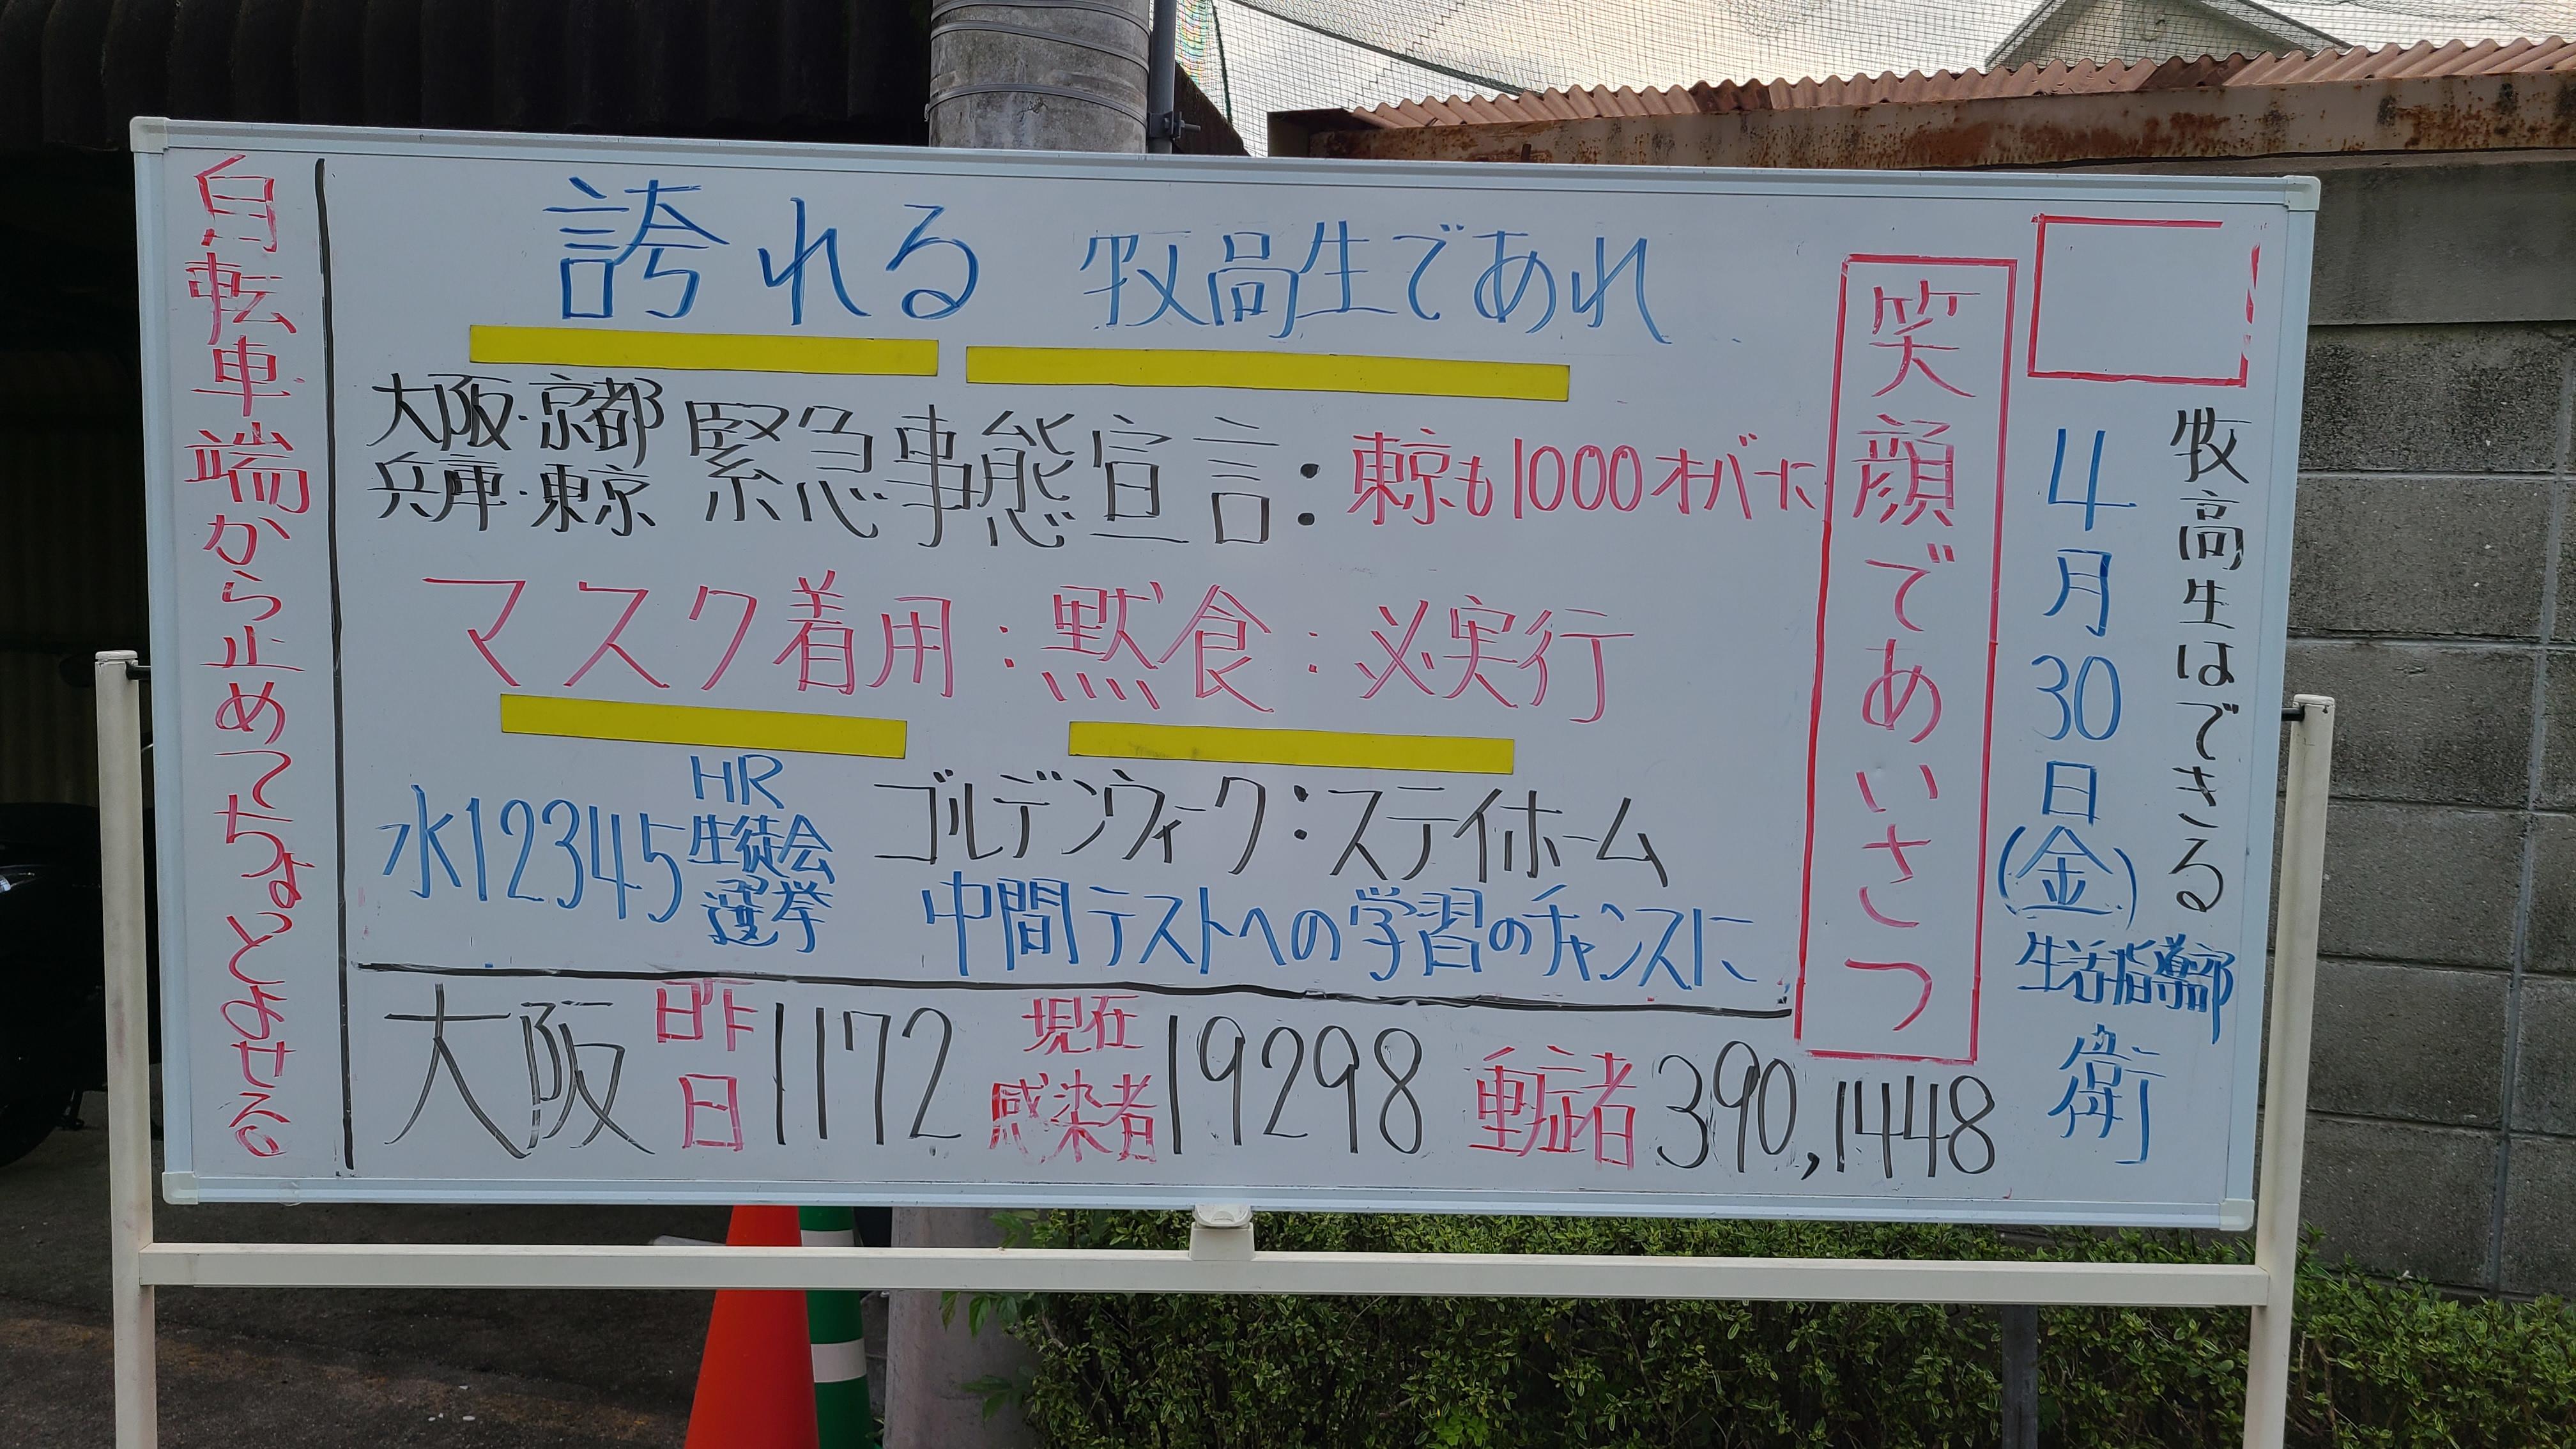 牧高生はできる
4月30日(金)
生活指導部
衛
笑顔であいさつ
誇れる 牧高生であれ
大阪・京都
兵庫・東京
緊急事態宣言:東京も1000オーバーだ
マスク着用:黙食:必実行
水12345
HR
生徒会
選挙
ゴールデンウィーク:ステイホーム
中間テストへの学習のチャンスに
大阪 昨日 1172 現在感染者 19298 重症者 390,1448
自転車端から止めてちょとよせる。